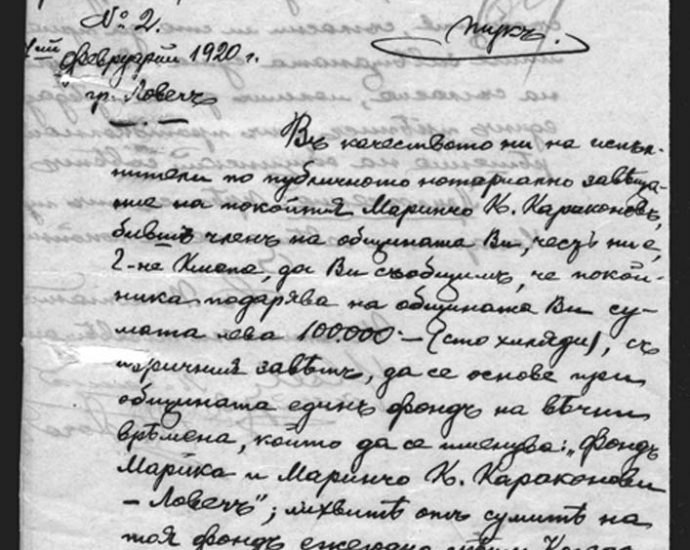 № 2.
февруарий 1920 г.
гр. Ловечъ
Въ качеството ни на испъл-
нители по публичното нотариално завѣща-
ние на покойтия Маринчо К. Караконовъ,
бившъ членъ на общината Ви, честь ни е,
Г-не Кмета, да Ви съобщимъ, че покой-
ника подарява на общината Ви су-
мата лева 100.000 – (сто хиляди), съ
изричния завѣтъ, да се основе при
общината единъ фондъ на вѣчни
врѣмена, който да се именува: „Фондъ
Марийка и Маринчо К. Караконови
– Ловечъ"; лихвитѣ отъ сумитѣ на
тоя фондъ ежегодно